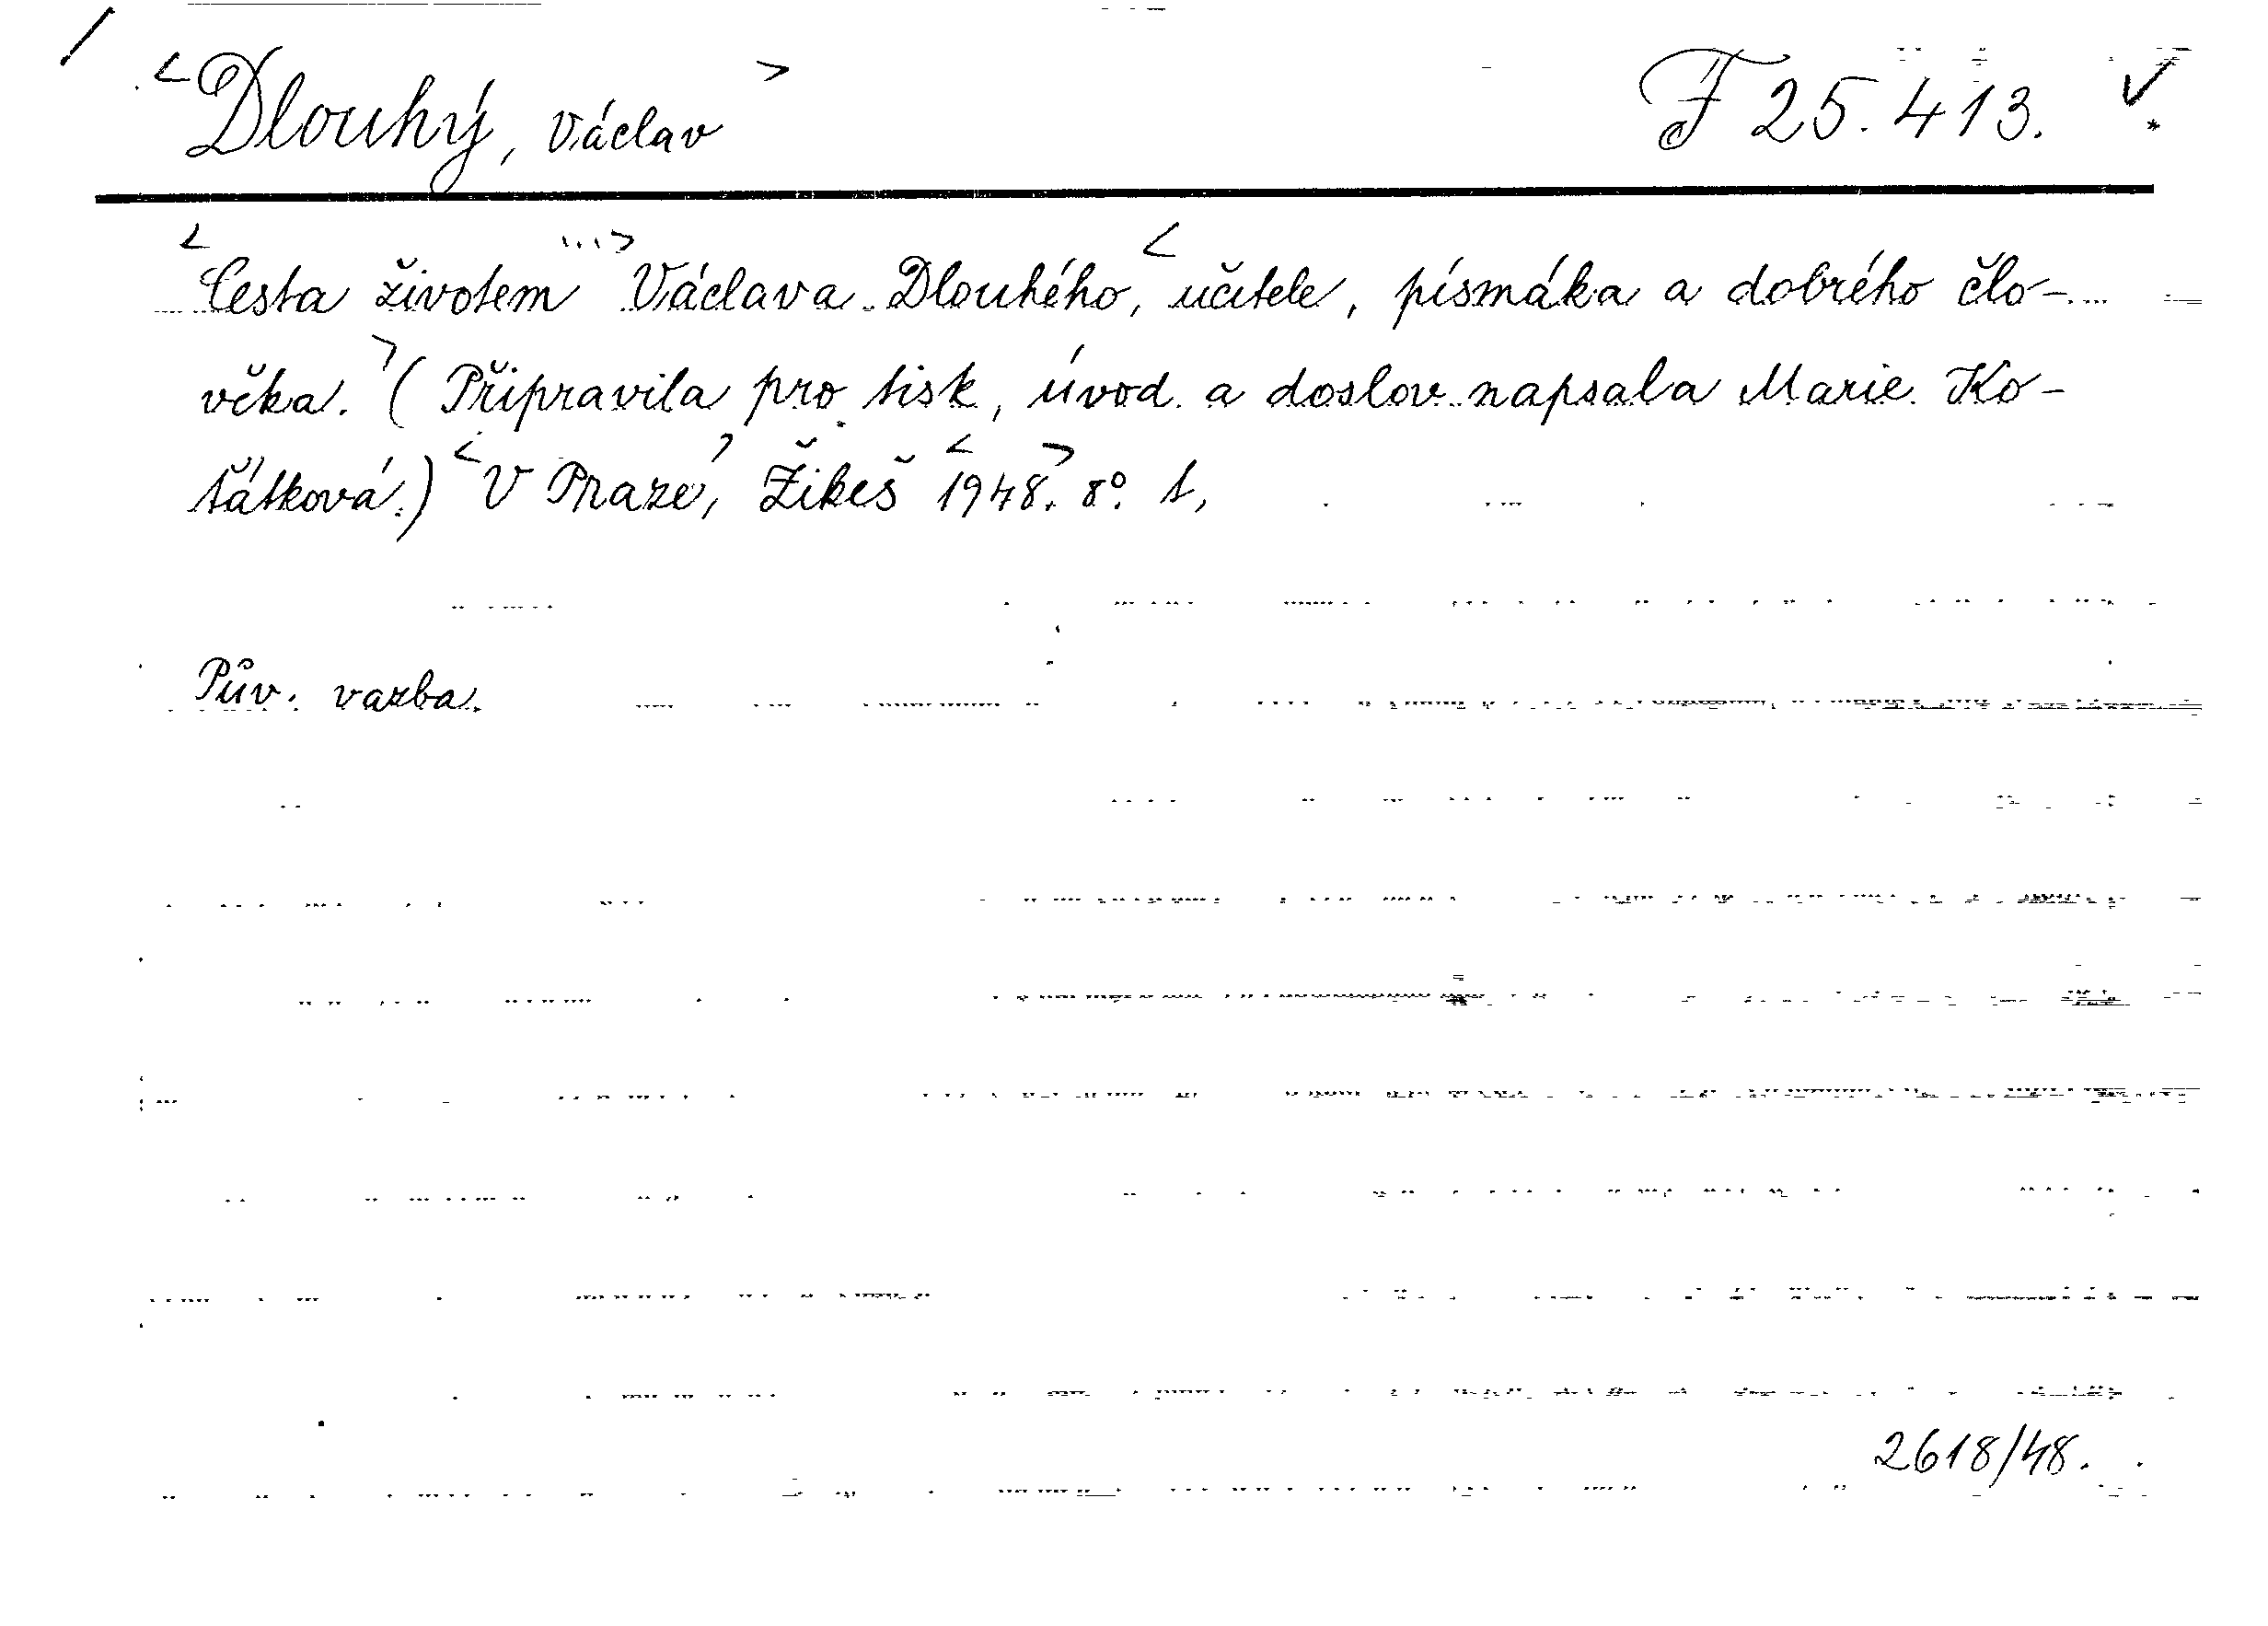 Dlouhý, Václav F 25.413.
Cesta životem Václava Dlouhého, učitele, písmáka a dobrého člo-
věka. (Připravila pro tisk, úvod a doslov napsala Marie Ko-
ťátková.) V Praze, Žikeš 1948. 8°.
Pův. vazba.
2618/48.